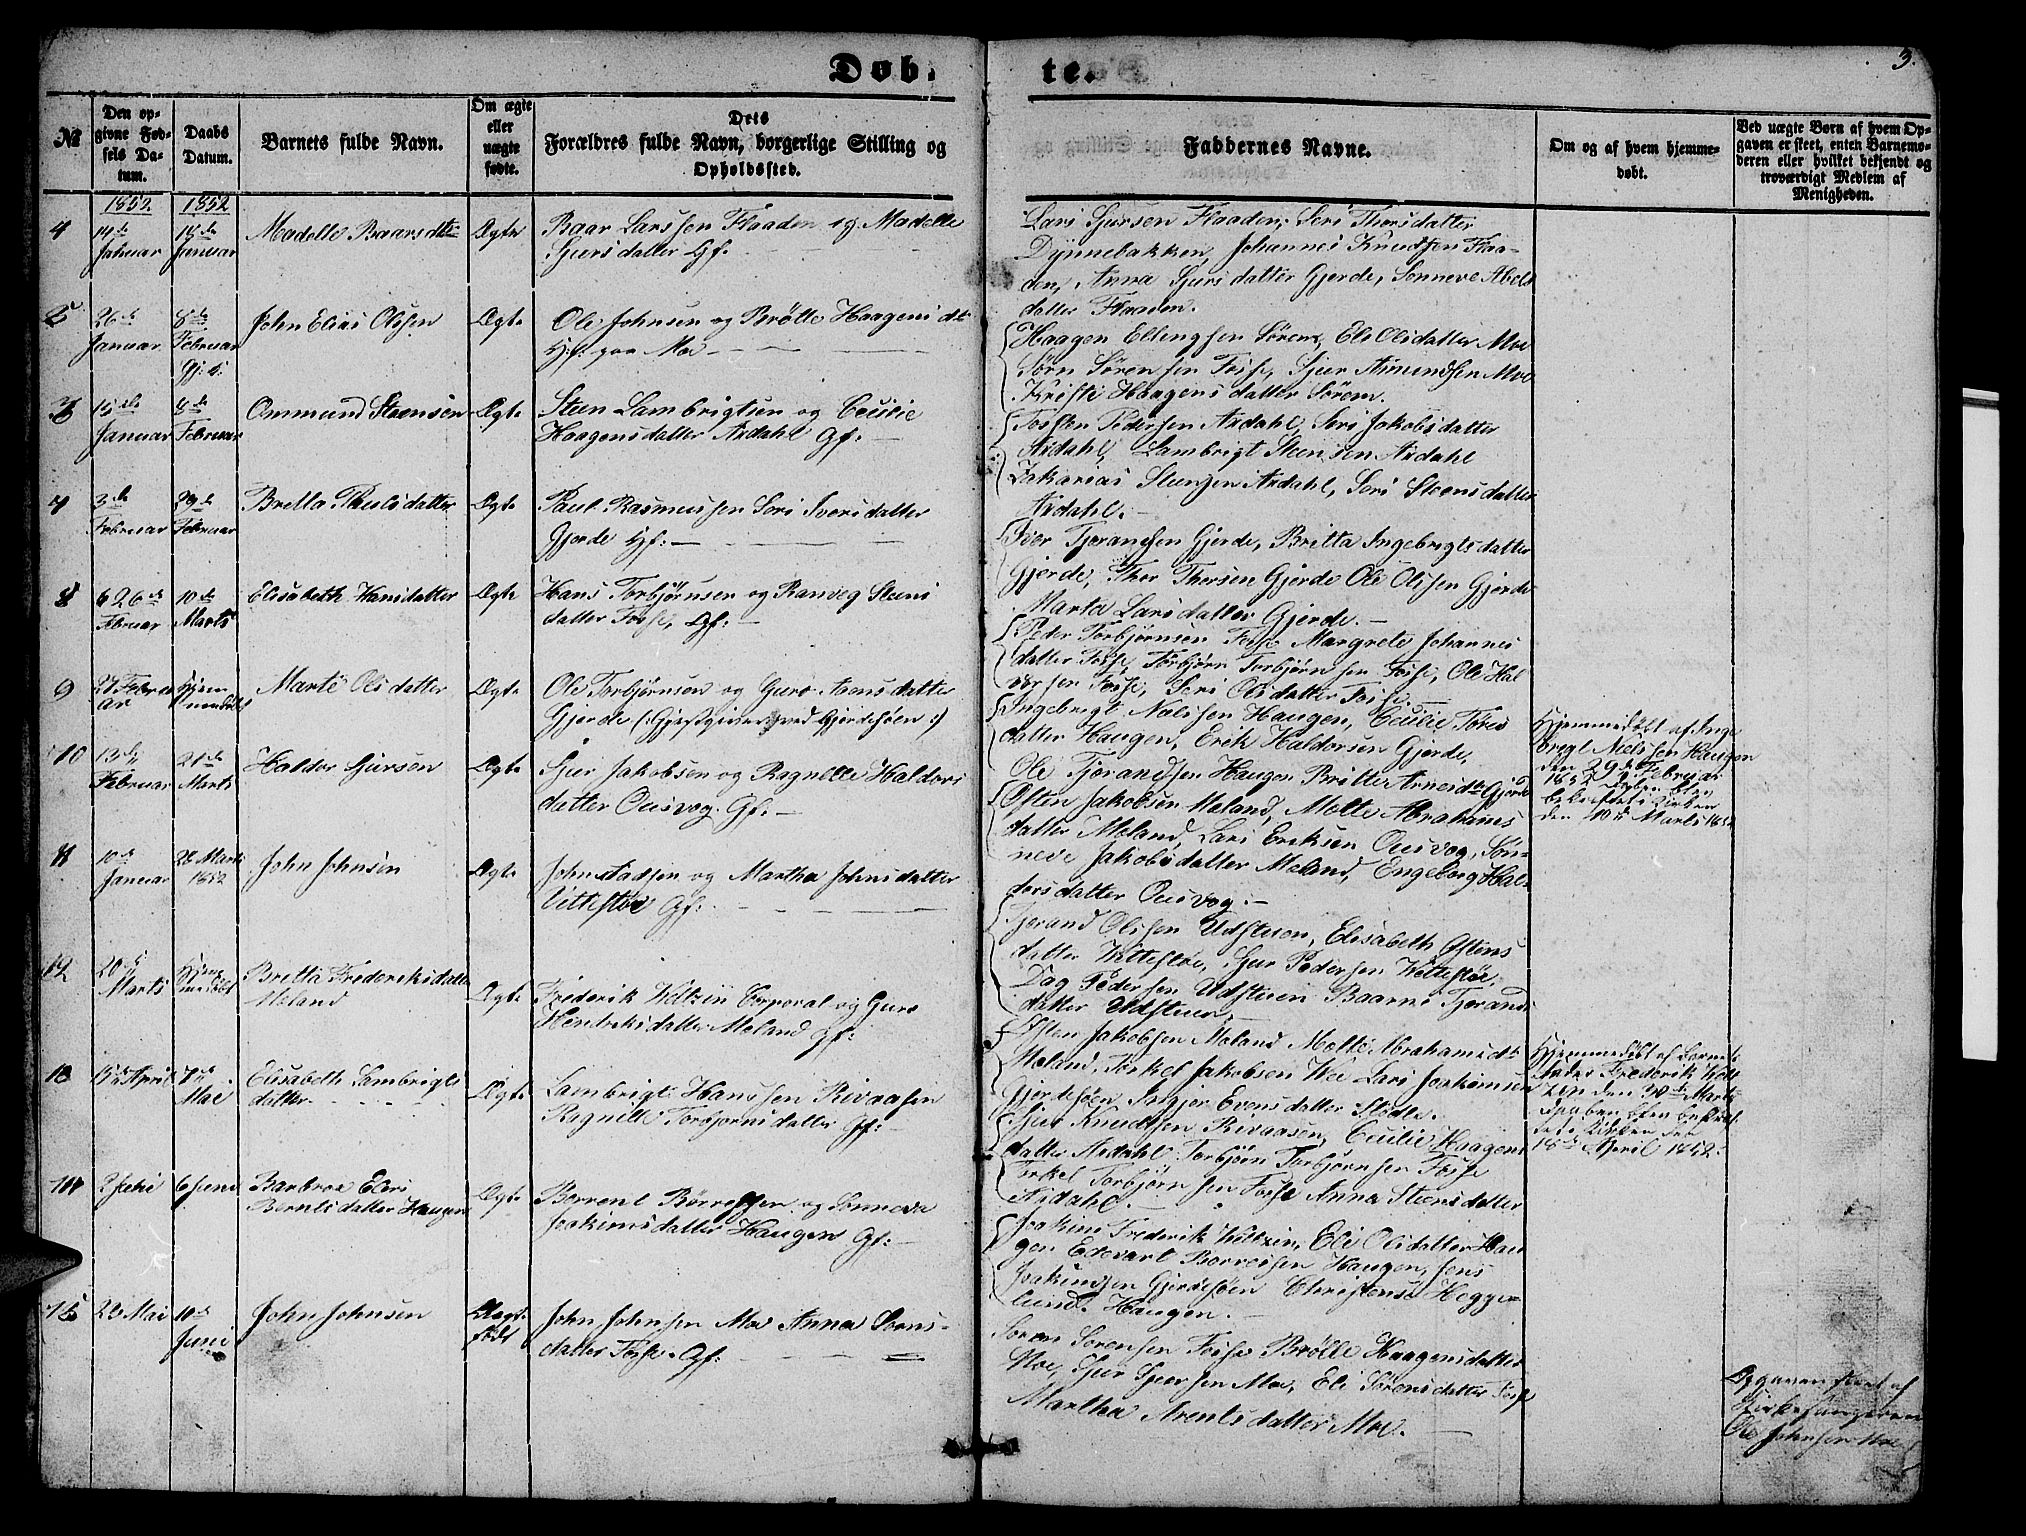 Døb.
te.
3.
№
Den op-
givne Fød-
sels Da-
tum.
Daabs
Datum.
Barnets fulde Navn.
Om ægte
eller
uægte
fødte.
Dets
Forældres fulde Navn, borgerlige Stilling og
Opholdssted.
Faddernes Navne.
Om og af hvem hjemme-
døbt.
Ved uægte Børn af hvem Op-
gaven er skeet, enten Barnemo-
deren eller hvilket bekjendt og
troværdigt Medlem af
Menigheden.
1852
1852
4
14de
Januar
18de
Januar
Madelle Baarsdtr
Ægte
Baar Larssen Flaaden og Madelle
Sjursdatter Gf.
Lars Sjursen Flaaden, Seri Thorsdatter
Dÿnnebakken, Johannes Knudssen Flaa-
den, Anna Sjursdatter Gjerde, Sonneve Abels
datter Flaaden.
5
26de
Januar
8de
Februar
John Elias Olssen
Ægte
Ole Johnsen og Brølle Haagensdtr
Gf: paa Moe
Haagen Ellingssen Sørem, Eli Olsdatter Moe
Sørn Sørenssen Fosse, Sjur Amundssen Moe
Kristi Haagensdatter Sørem.
15de
Januar
8de
Februar
Ommund Steensen
Ægte
Steen Lambrigtsen og Cecilie
Haagensdatter Axdahl Gf:
Tosten Pederssen Axdahl, Seri Jakobsdatter
Axdahl, Lambrigt Steensen Axdahl
Zakarias Steensen Axdahl, Seri Steensdatter
Axdahl.
3de
Februar
29de
Februar
Britta Paulsdatter
Ægte
Paul Rasmussen Seri Iversdatter
Gjerde Gf:
Iver Tjerandssen Gjerde, Britta Ingebrigtsdatter
Gjerde, Thor Thorsen Gjerde Ole Olssen Gjerde
Marta Larsdatter Gjerde.
8
26de
Februar
10de
Marts
Elisabeth Hansdatter
Ægte
Hans Torbjørnsen og Ranveg Steens
datter Fosse, Gf:
Peder Torbjørnsen Fosse Margrete Johannes
datter Fosse, Torbjørn Torbjørnssen Fosse, Ole Hal
vorssen Fosse, Seri Olsdatter Fosse.
9
27 Febru
ar
Hjem
medøbt
Marte Olsdatter
Ægte
Ole Torbjørnsen og Guro Arnesdatter
Gjerde (:Gjestgiver ved Gjerdesøen:)
Ingebrigt Nielssen Haugen, Cecilie Tores
datter Haugen, Erik Haldorsen Gjerde,
Ole Tjerandssen Haugen Britte Arnesdtr Gjerde
Hjemmedøbt af Inge
brigt Nielssen Haugen
den 29de Februar
1852 Daaben blev
bekræftet i Kirken
den 10de Marts 1852
10
13de
Februar
21de
Marts
Haldor Sjursen
Ægte
Sjur Jakobsen og Ragnelle Haldors
datter Ousvog. Gf:
Østen Jakobsen Moland, Malte Abrahams
datter Moland, Lars Eriksen Ousvog, Søn-
neve Jakobsdatter Moland, Engeborg Hal-
dorsdatter Ousvog.
11
10de
Januar
28 Marts
1852
John Johnsen
Ægte
John Aadsen og Martha Johnsdatter
Vittestøe Gf:
Tjerand Olssen Udsteen, Elisabeth Østens
datter Vittestøe, Sjur Pedersen Vittestøe,
Dag Pederssen Udsteen Baarne Tjerands
datter Udsteen.
12
20de
Marts
Hjem
medøbt
Britta Frederiksdatter
Moland
Ægte
Frederik Veltzin Corporal og Guro
Henriksdatter Moland Gf:
Østen Jakobssen Moland Malte Abrahamsdtr
Moland, Torkel Jakobsen Wee Lars Joakimsen
Gjerdesøen Ingjer Evensdatter Stedle.
Hjemmedøbt af Barnets
Fader Frederik Velt
zin den 30de Marts
Daaben blev bekræf-
tet i Kirken den
18de April 1852.
13
15de April
7de
Mai
Elisabeth Lambrigts
datter
Ægte
Lambrigt Hanssen Rivaasen
Ragnille Torbjørnsdatter Gf:
Sjur Knudssen Rivaasen, Cecilie Haagens
datter Axdahl Torbjørn Torbjørnssen Fosse
Tirkel Torbjørnssen Fosse Anna Steensdatter
Axdahl.
14
2 Juni
6 Juni
Barbroe Elies
Berntsdatter Haugen
Ægte
Bernt Børressen og Sonneva
Joakimsdatter Haugen Gf:
Joakim Frederik Veltzin, Eli Olsdatter Hau
gen Edevart Borressen Haugen, Jens
Joakimssen Gjerdesøen Christense Hegge
lund Haugen.
15
22 Mai
10de
Juni
John Johnsen
Uægte
født
John Johnssen Moe Anna Sørns-
datter Fosse. Gf:
Sørn Sørenssen Fosse Brølle Haagensdatter
Moe, Sjur Sjurssen Moe, Eli Sørensdatter Fosse
Martha Arentsdatter Moe.
Opgaven skeet af
Kirkesangeren
Ole Johnssen Moe